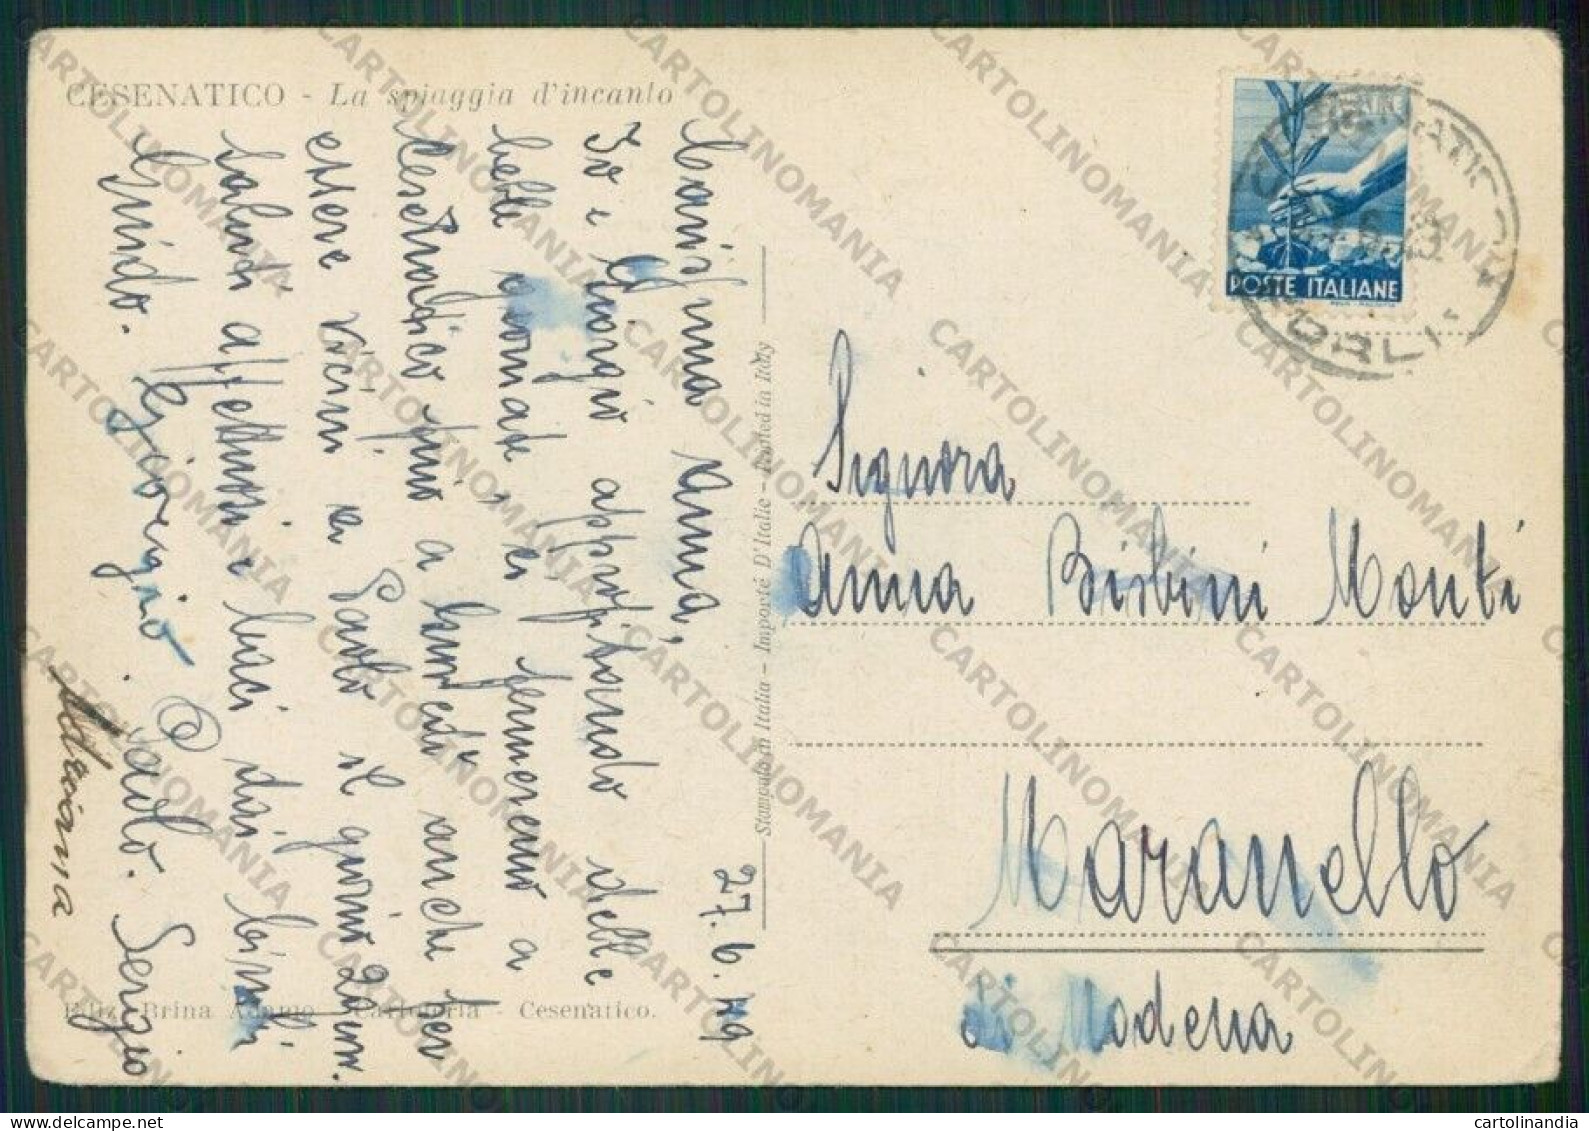 CESENATICO - La spiaggia d'incanto
27.6.49
Carissima Anna,
Io e Giorgio approfittando delle
belle giornate ci fermeremo a
Cesenatico fino a lunedì anche per
essere vicini a Paolo il giorno 29 corr.
Saluti affettuosi e baci dai bimbi
Guido. Giorgio Paolo. Sergio
Ediz. Brina Adamo - Cartoleria - Cesenatico.
Stampato in Italia - Importé D'Italie - Printed in Italy
POSTE ITALIANE
CESENATICO
FORLI
Signora
Anna Bisbini Monti
Maranello
di Modena
CARTOLINOMANIA
cartolinandia